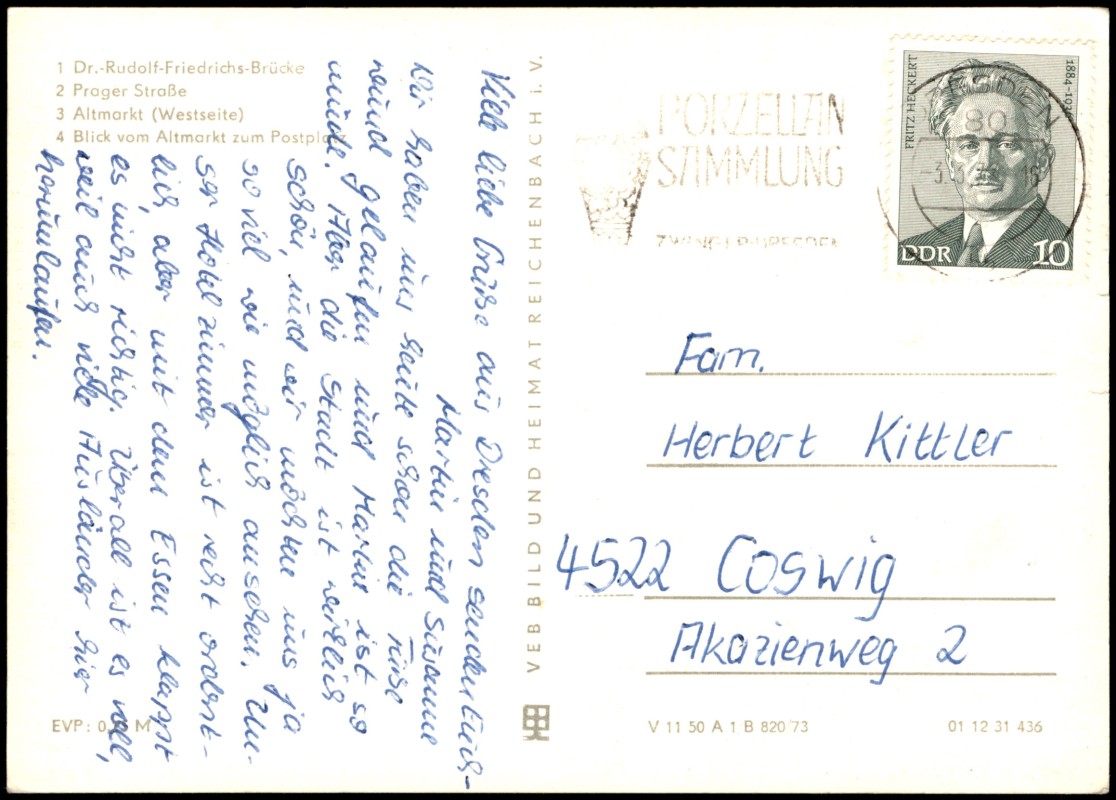 1 Dr.-Rudolf-Friedrichs-Brücke
2 Prager Straße
3 Altmarkt (Westseite)
4 Blick vom Altmarkt zum Postplatz
Viele liebe Grüße aus Dresden senden Euch-
Martin und Susanne
Wir haben uns heute schon die Füße
wund gelaufen und Martin ist so
müde. Aber die Stadt ist wirklich
schön, und wir möchten uns ja
so viel wie möglich ansehen. Un-
ser Hotelzimmer ist recht ordent-
lich, aber mit dem Essen klappt
es nicht richtig. Überall ist es voll,
weil auch viele Ausländer hier
herumlaufen.
EVP: 0, M
VEB BILD UND HEIMAT REICHENBACH i. V.
PORZELLAN
SAMMLUNG
ZWINGER
DRESDEN
80
FRITZ HECKERT
1884-19
DDR
10
Fam.
Herbert Kittler
4522 Coswig
Akazienweg 2
V 11 50 A 1 B 820/73
01 12 31 436